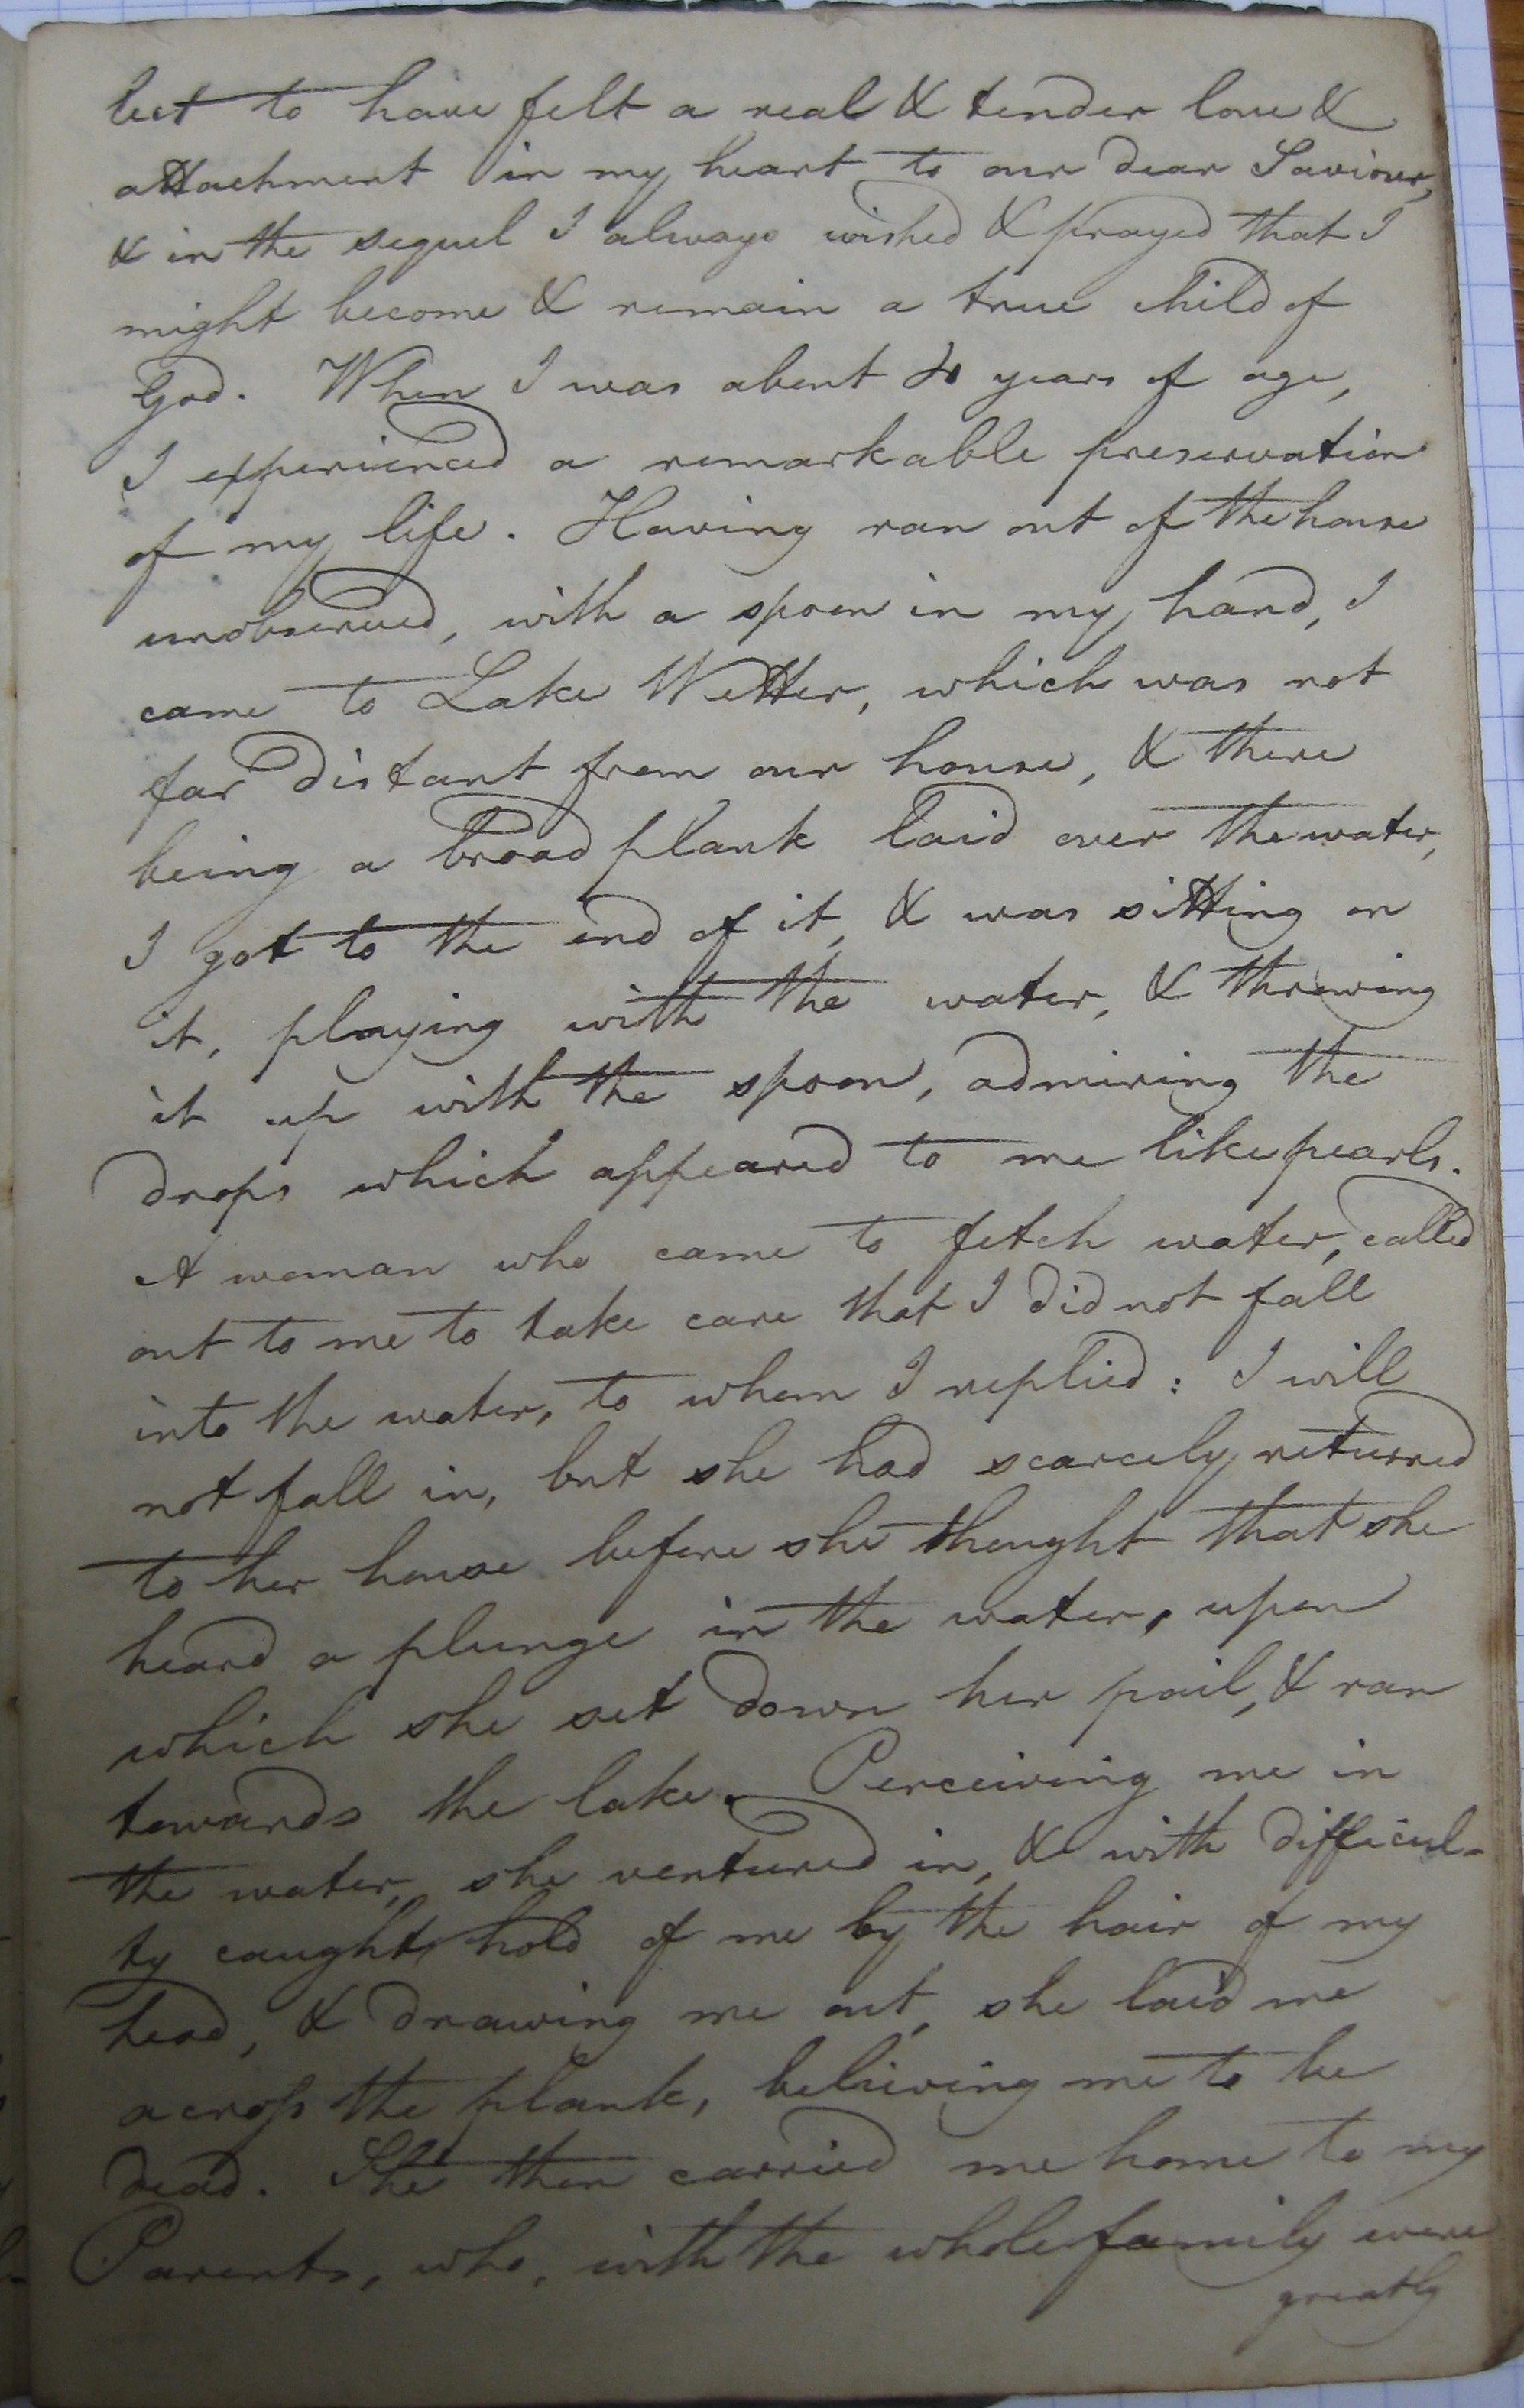 lect to have felt a real & tender love &
attachment in my heart to our dear Saviour,
& in the sequel I always wished & prayed that I
might become & remain a true child of
God. When I was about 4 years of age,
I experienced a remarkable preservation
of my life. Having ran out of the house
unobserved, with a spoon in my hand, I
came to Lake Wetter, which was not
far distant from our house, & there
being a broad plank laid over the water,
I got to the end of it, & was sitting on
it, playing with the water, & throwing
it up with the spoon, admiring the
drops which appeared to me like pearls.
A woman who came to fetch water, called
out to me to take care that I did not fall
into the water, to whom I replied: I will
not fall in, but she had scarcely returned
to her house before she thought that she
heard a plunge in the water, upon
which she set down her pail, & ran
towards the lake. Perceiving me in
the water, she ventured in, & with difficul-
ty caught hold of me by the hair of my
head, & drawing me out, she laid me
across the plank, believing me to be
dead. She then carried me home to my
Parents, who, with the whole family were
greatly